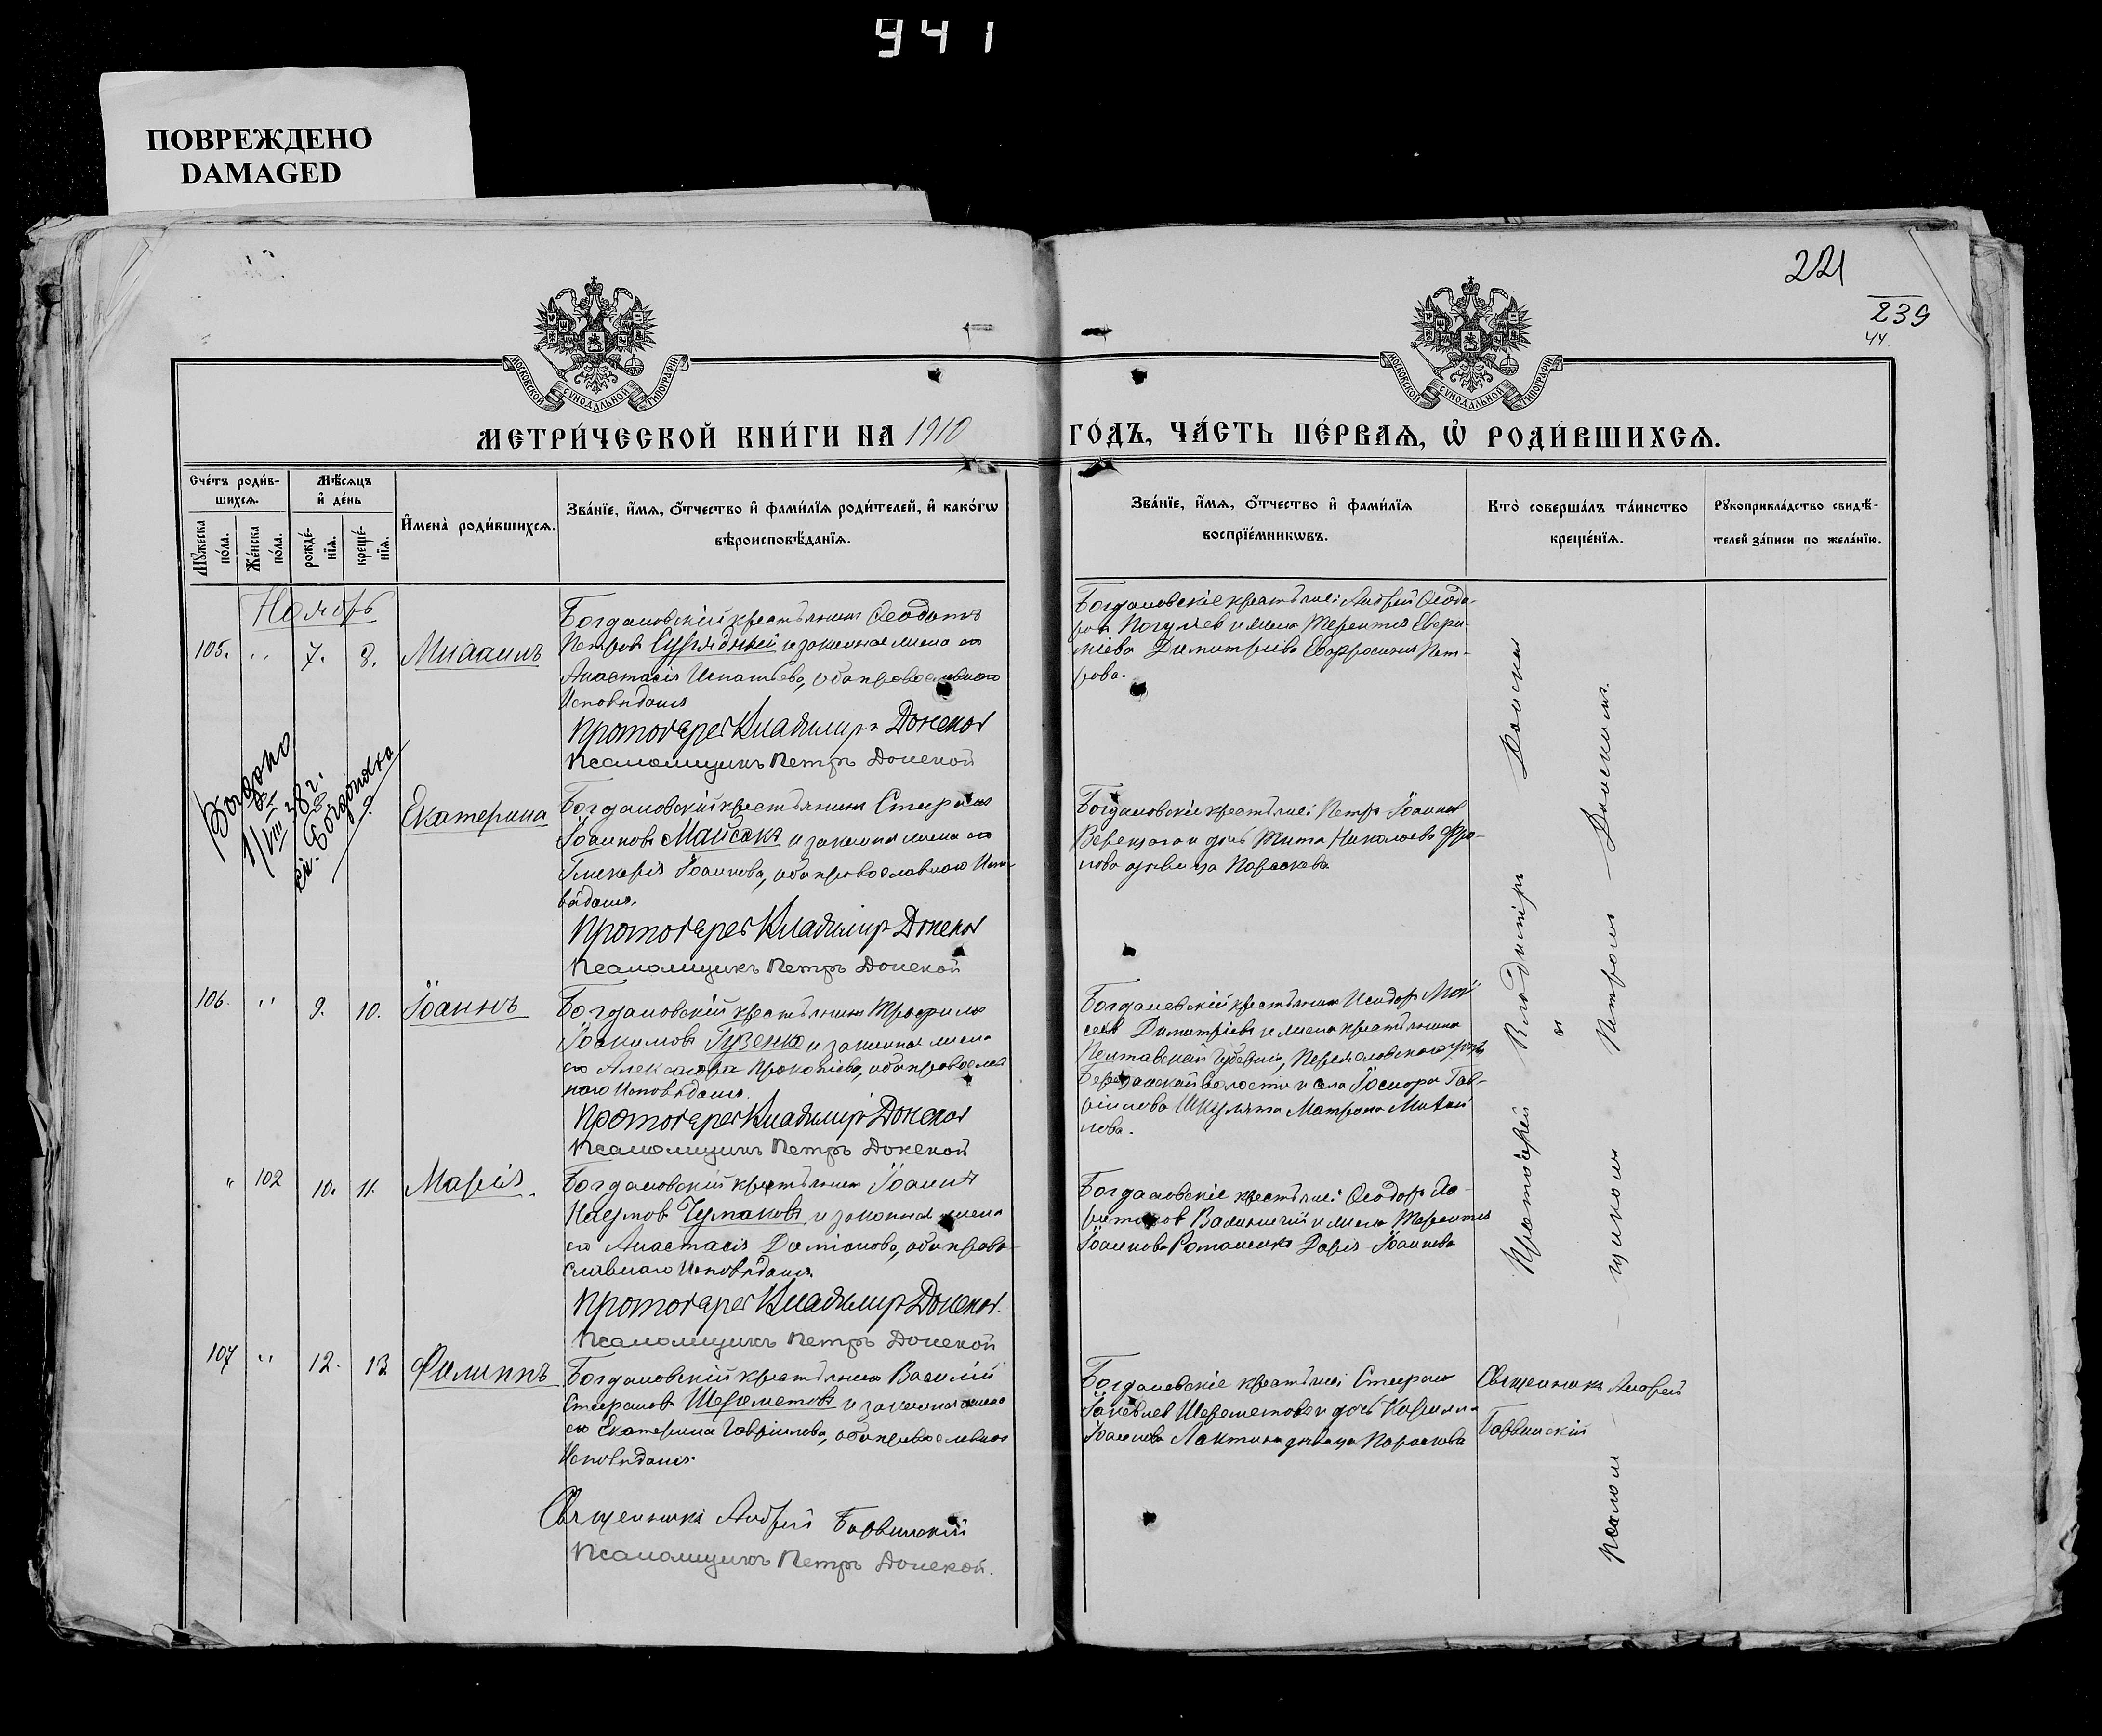 941
ПОВРЕЖДЕНО
DAMAGED
221
239
44
МОСКОВСКОЙ СУНОДАЛЬНОЙ ТИПОГРАФІИ
МОСКОВСКОЙ СУНОДАЛЬНОЙ ТИПОГРАФІИ
МЕТРИ́ЧЕСКОЙ КНИ́ГИ НА 1910
ГО́ДЪ, ЧА́СТЬ ПЕ́РВАѦ, Ѡ҆ РОДИ́ВШИХСѦ.
Сче́тъ роди́в-
шихсѧ.
Мꙋ́жеска по́ла.
Же́нска по́ла.
Мѣ́сѧцъ
и҆ де́нь
рожде́-
нїѧ.
креще́-
нїѧ.
И҆мена̀ роди́вшихсѧ.
Зва́нїе, и҆́мѧ, ѻ҆́тчество и҆ фами́лїѧ роди́телей, и҆ како́гѡ
вѣроисповѣ́данїѧ.
Зва́нїе, и҆́мѧ, ѻ҆́тчество и҆ фами́лїѧ
воспрїе́мникѡвъ.
Кто̀ соверша́лъ та́инство
креще́нїѧ.
Рꙋкоприкла́дство свидѣ́-
телей за́писи по жела́нїю.
Ноябрь
105. " 7. 8. Михаилъ
Богдановскій крестьянинъ Ѳеодотъ
Петровъ и законная жена его
Анастасія Игнатьева, оба православнаго
Исповѣданія
Протоіерей Владимиръ Донской
Псаломщикъ Петръ Донской
Богдановскіе крестьяне: Андрей Ѳеодо-
ровъ и жена Терентія
Димитріева Евфросинія Пет-
рова.
Екатерина
Богдановскій крестьянинъ Стефанъ
Іоанновъ Майсакъ и законная жена его
Гликерія Іоаннова, оба православнаго Испо-
вѣданія.
Протоіерей Владимиръ Донской
Псаломщикъ Петръ Донской
Богдановскіе крестьяне: Петръ Іоанновъ
и дочь Тита Николаева
дѣвица Параскева
106. " 9. 10. Іоаннъ
Богдановскій крестьянинъ Трофимъ
Іоакимовъ Гузенко и законная жена
его Александра Прокопіева, оба православ
наго Исповѣданія.
Протоіерей Владиміръ Донской
Псаломщикъ Петръ Донской
Богдановскій крестьянинъ Исидоръ Мой
сеев Димитріевъ и жена крестьянина
Полтавской губерніи, Переяславского уѣзда
Березанской волости и села Гав-
ріилова Шкулята Матрона Михай
лова.
" 102 10. 11. Марія.
Богдановскій крестьянинъ Іоаннъ
Наумов Чумаковъ и законная жена
его Анастасія Даміанова, оба право-
славнаго Исповѣданія.
Протоіерей Владимиръ Донской.
Псаломщикъ Петръ Донской
Богдановскіе крестьяне: Ѳеодоръ Ха-
ритонов и жена Терентія
Іоаннова Романенка Дарія Іоаннова
107 " 12. 13 Филиппъ
Богдановскій крестьянинъ Василій
Стефановъ Шереметовъ и законная жена
его Екатерина Гавріилова, оба православнаго
Исповѣданія.
Священникъ Андрей Барвинскій
Псаломщикъ Петръ Донской.
Богдановскіе крестьяне: Стефанъ
Іаковлев Шереметовъ и дочь
Іоаннова Лактина дѣвица Параскева
Священникъ Андрей
Барвинскій
Протоіерей Владиміръ Донской
и
псалом — щикомъ Петромъ — Донскимъ.